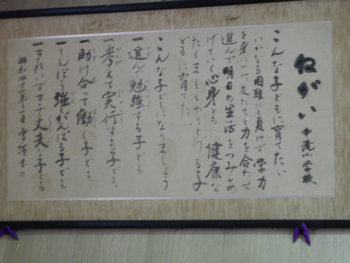 ねがい 中滝小学校
こんな子どもに育てたい
いかなる困難にも負けず学力
を身につけ友だちと力を合わせ
進んで明日の生活をつみとめ
げていく心身ともに健康な
たくましくやりとげる子
どもに育てたい
こんな子どもになりましょう
一進んで勉強する子ども
一考えて実行する子ども
一助け合って働く子ども
一しんぼう強くがんばる子ども
一きれいずきで丈夫な子ども
昭和四十一年